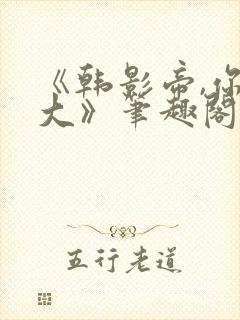 《韩影帝,你
大》笔趣阁
五行老道